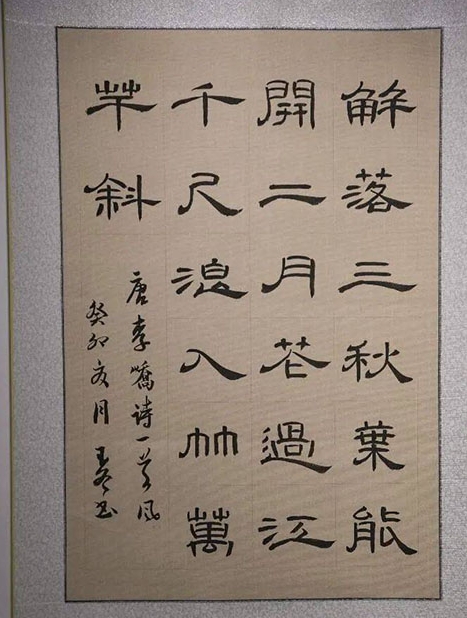 觧落三秋葉能
開二月花過江
千尺浪入竹萬
竿斜
唐李嶠诗一首风
癸卯亥月 书